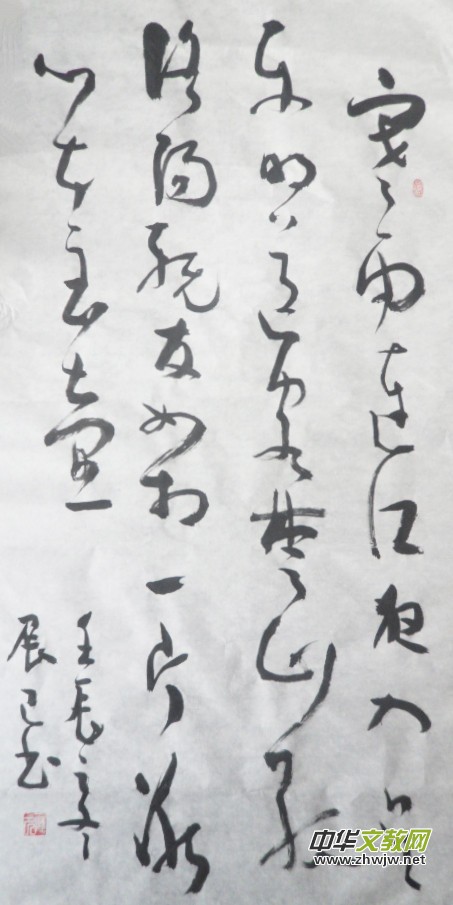 寒雨連江夜入吴
平明送客楚山孤
洛陽親友如相一片冰
心在玉壶
书
中华文教网
www.zhwjw.net